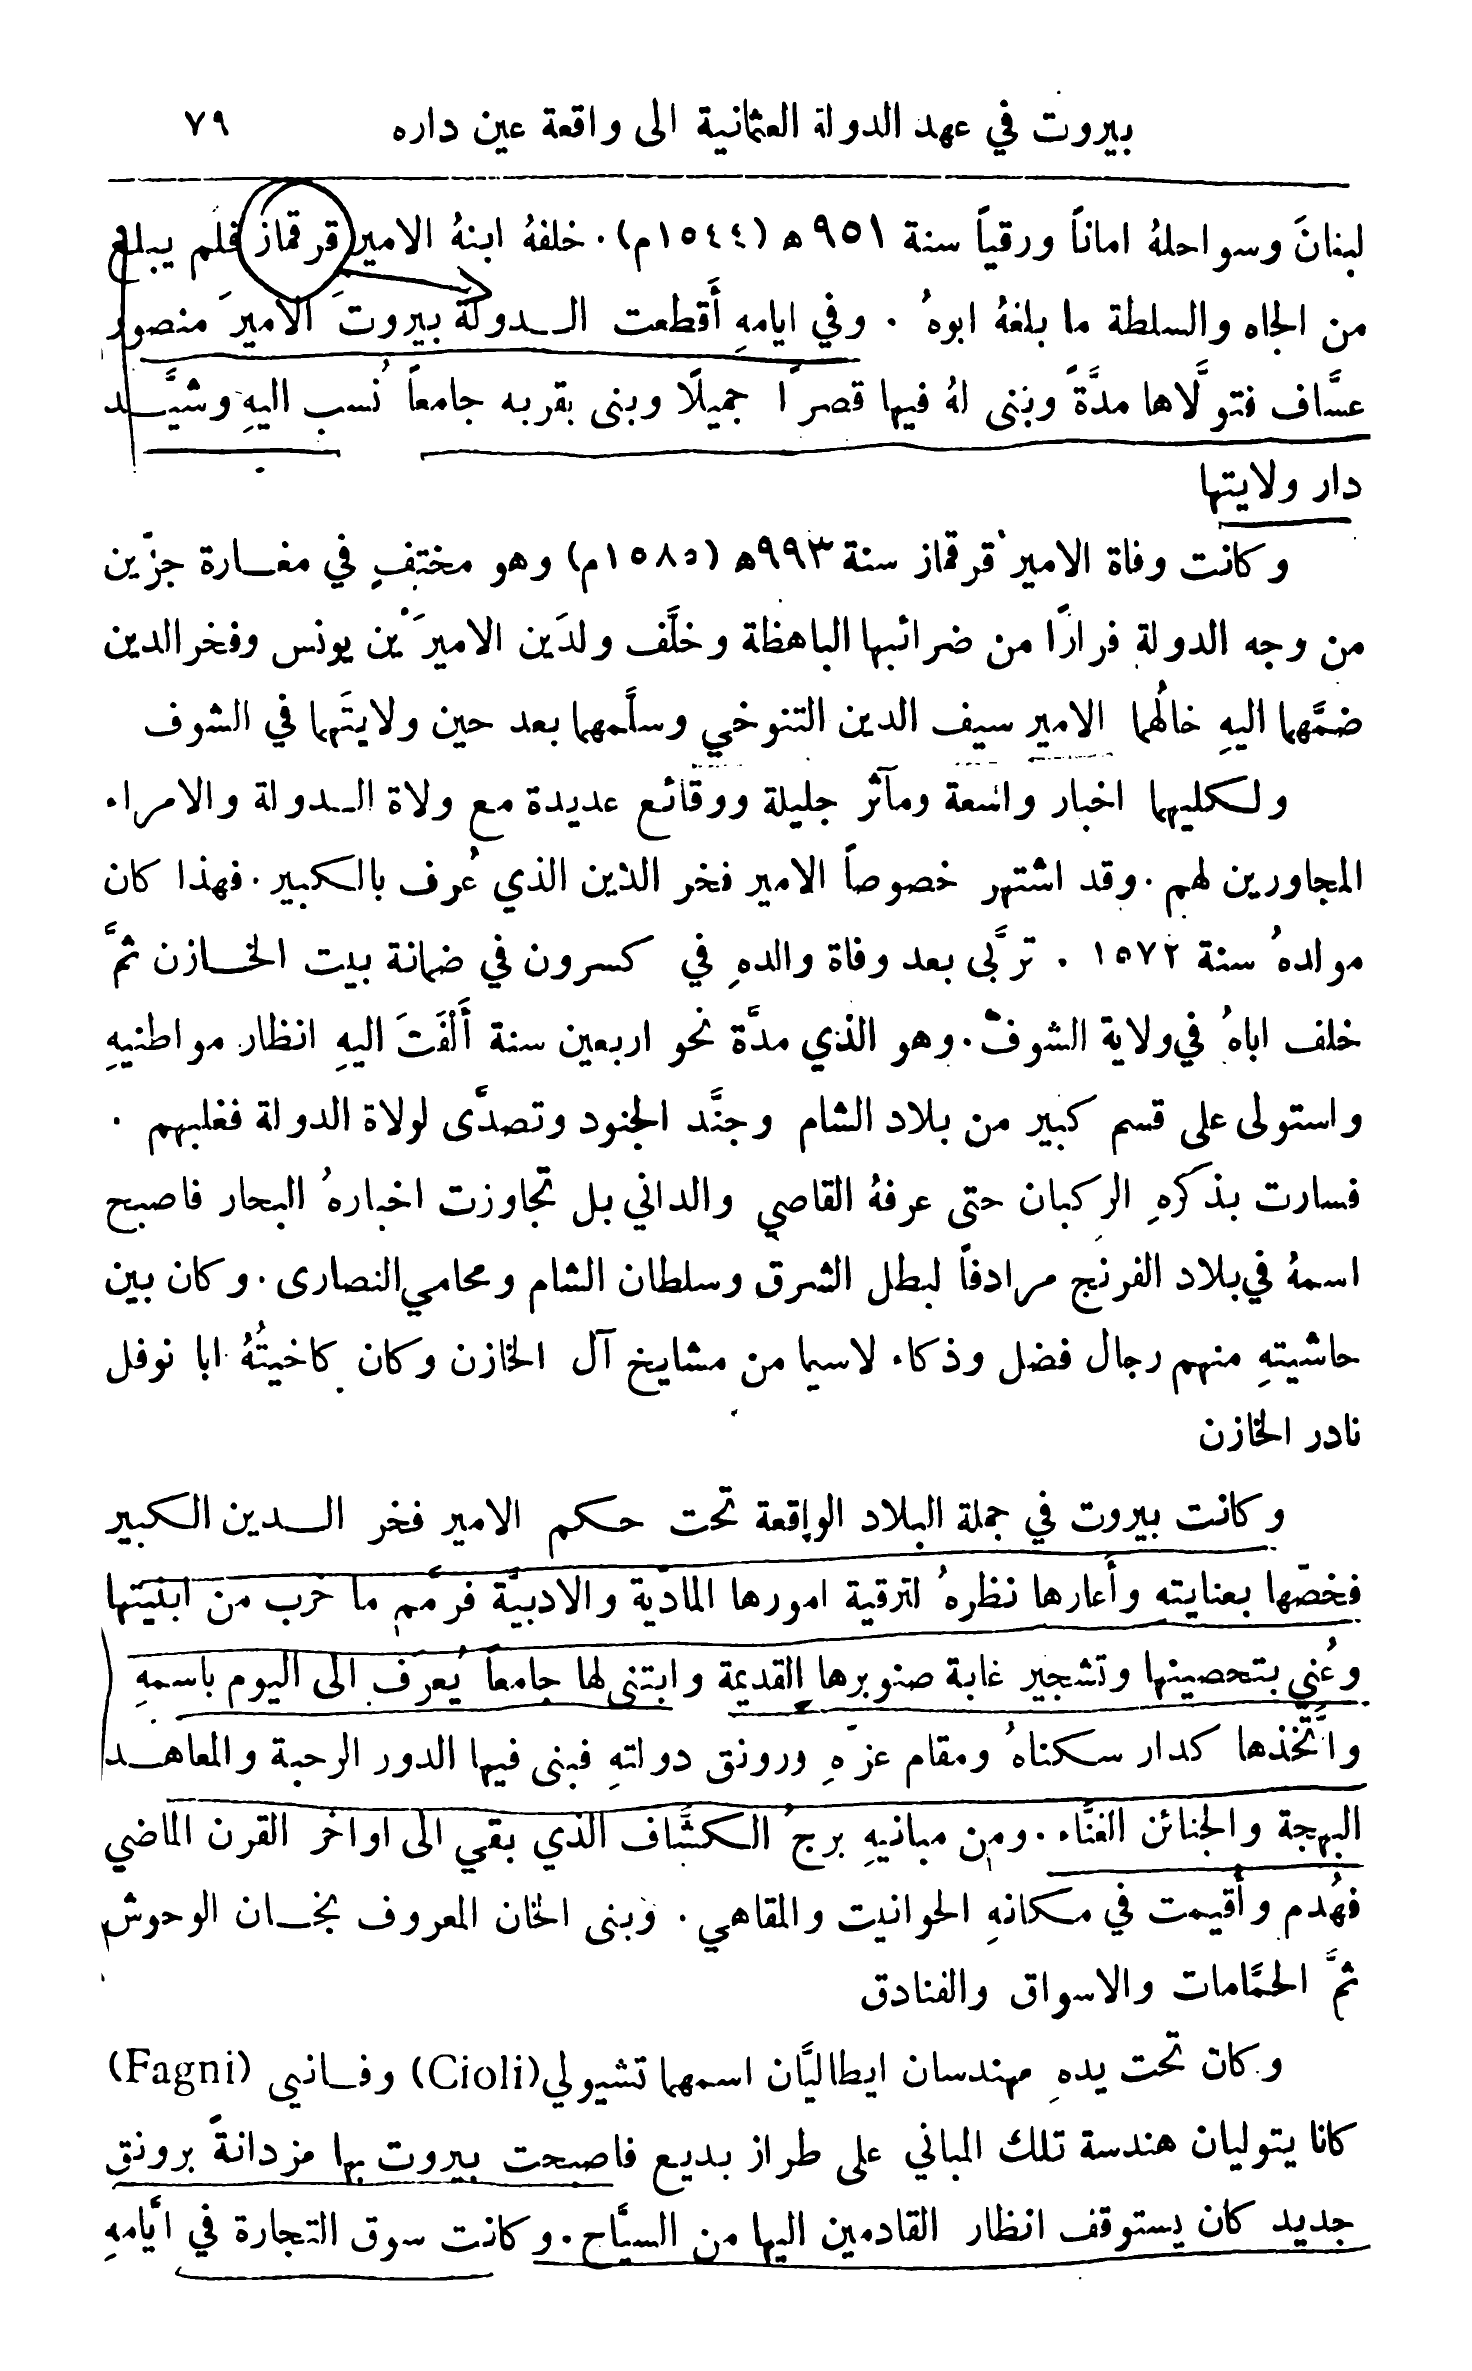 بيروت في عهد الدولة العثمانية الى واقعة عين داره ٧٩
لبنانَ وسواحلهُ اماناً ورقياً سنة ٩٥١ﻫ (١٥٤٤م). خلفهُ ابنهُ الامير قرقماز فلم يبلغ
من الجاه والسلطة ما بلغهُ ابوهُ . وفي ايامهِ أَقطعت الدولة بيروتَ الاميرَ منصور
عسَّاف فتولَّاها مدَّةً وبنى لهُ فيها قصرًا جميلًا وبنى بقربه جامعاً نُسب اليهِ وشيَّد
دار ولايتها
وكانت وفاة الامير قرقماز سنة ٩٩٣ﻫ (١٥٨٥م) وهو مختفٍ في مغارة جزّين
من وجه الدولة فرارًا من ضرائبها الباهظة وخلَّف ولدَين الاميرَيْن يونس وفخرالدين
ضمَّهما اليهِ خالُهما الامير سيف الدين التنوخي وسلَّمهما بعد حين ولايتَهما في الشوف
ولكليهما اخبار واسعة ومآثر جليلة ووقائع عديدة مع ولاة الدولة والامراء
المجاورين لهم . وقد اشتهر خصوصاً الامير فخر الدين الذي عُرف بالكبير . فهذا كان
مولدهُ سنة ١٥٧٢ . تربَّى بعد وفاة والدهِ في كسرون في ضمانة بيت الخازن ثمَّ
خلف اباهُ في ولاية الشوف . وهو الذي مدَّة نحو اربعين سنة أَلْفَتَ اليهِ انظار مواطنيهِ
واستولى على قسم كبير من بلاد الشام وجنَّد الجنود وتصدَّى لولاة الدولة فغلبهم .
فسارت بذكرهِ الركبان حتى عرفهُ القاصي والداني بل تجاوزت اخبارهُ البحار فاصبح
اسمهُ في بلاد الفرنج مرادفاً لبطل الشرق وسلطان الشام ومحامي النصارى . وكان بين
حاشيتهِ منهم رجال فضل وذكاء لاسيما من مشايخ آل الخازن وكان كاخيتُهُ ابا نوفل
نادر الخازن
وكانت بيروت في جملة البلاد الواقعة تحت حكم الامير فخر الدين الكبير
فخصّها بعنايته وأَعارها نظرهُ لترقية امورها المادّية والادبيَّة فرمَّم ما خرب من ابنيتها
وعُني بتحصينها وتشجير غابة صنوبرها القديمة وابتنى لها جامعاً يُعرَف الى اليوم باسمهِ
واتَّخذها كدار سكناهُ ومقام عزّهِ ورونق دولتهِ فبنى فيها الدور الرحبة والمعاهد
البهجة والجنائن الغنَّاء . ومن مبانيهِ برجُ الكشَّاف الذي بقي الى اواخر القرن الماضي
فهُدم وأُقيمت في مكانهِ الحوانيت والمقاهي . وبنى الخان المعروف بخان الوحوش
ثمَّ الحمَّامات والاسواق والفنادق
وكان تحت يدهِ مهندسان ايطاليَّان اسمهما تشيولي (Cioli) وفانيي (Fagni)
كانا يتوليان هندسة تلك المباني على طراز بديع فاصبحت بيروت بها مزدانةً برونق
جديد كان يستوقف انظار القادمين اليها من السيَّاح . وكانت سوق التجارة في ايَّامهِ